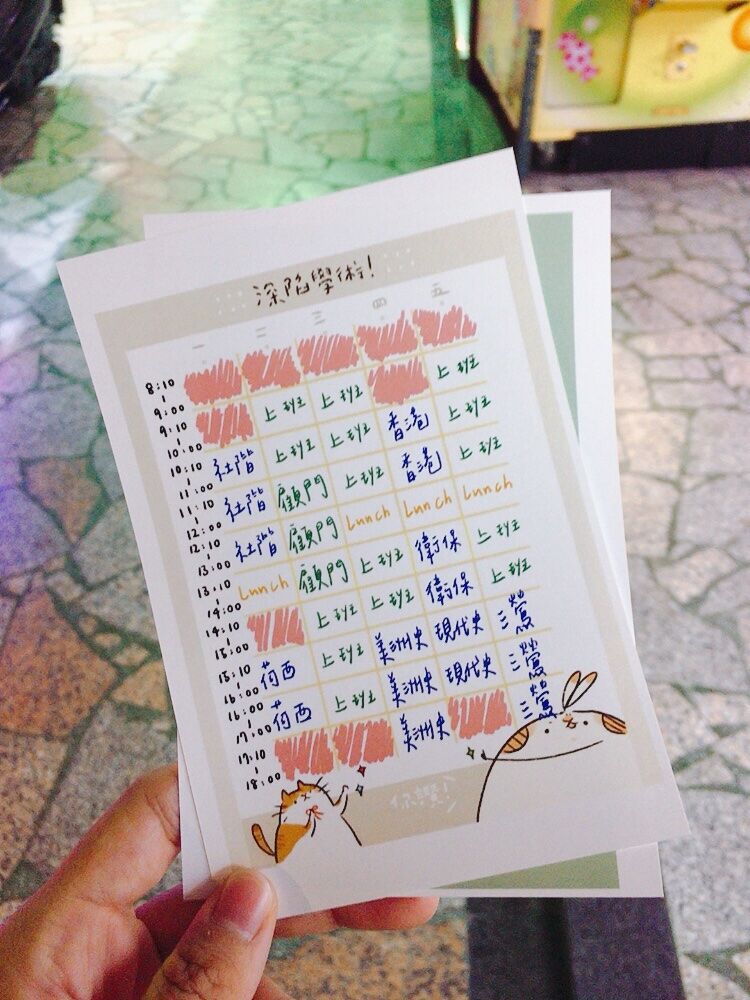 深陷學術!
一 二 三 四 五
8:10 | 9:00
9:10 | 10:00 上班 上班 上班
10:10 | 11:00 社階 上班 上班 香港 上班
11:10 | 12:00 社階 顧門 上班 香港 上班
12:10 | 13:00 社階 顧門 Lunch Lunch Lunch
13:10 | 14:00 Lunch 顧門 上班 衛保 上班
14:10 | 15:00 上班 上班 衛保 上班
15:10 | 16:00 荷西 上班 美洲史 現代史 三鶯
16:10 | 17:00 荷西 上班 美洲史 現代史 三鶯
17:10 | 18:00 美洲史 三鶯
你讚!